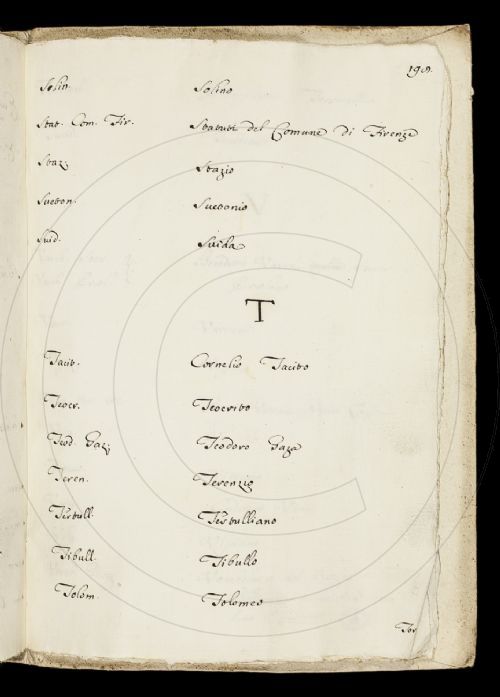 Solin. Solino
Stat. Com. Fir. Statuti del Comune di Firenze
Staz. Stazio
Sueton. Suetonio
Suid. Suida
T
Tacit. Cornelio Tacito
Teocr. Teocrito
Teod. Gaz. Teodoro Gaza
Teren. Terenzio
Tertull. Tertulliano
Tibull. Tibullo
Tolom. Tolomeo